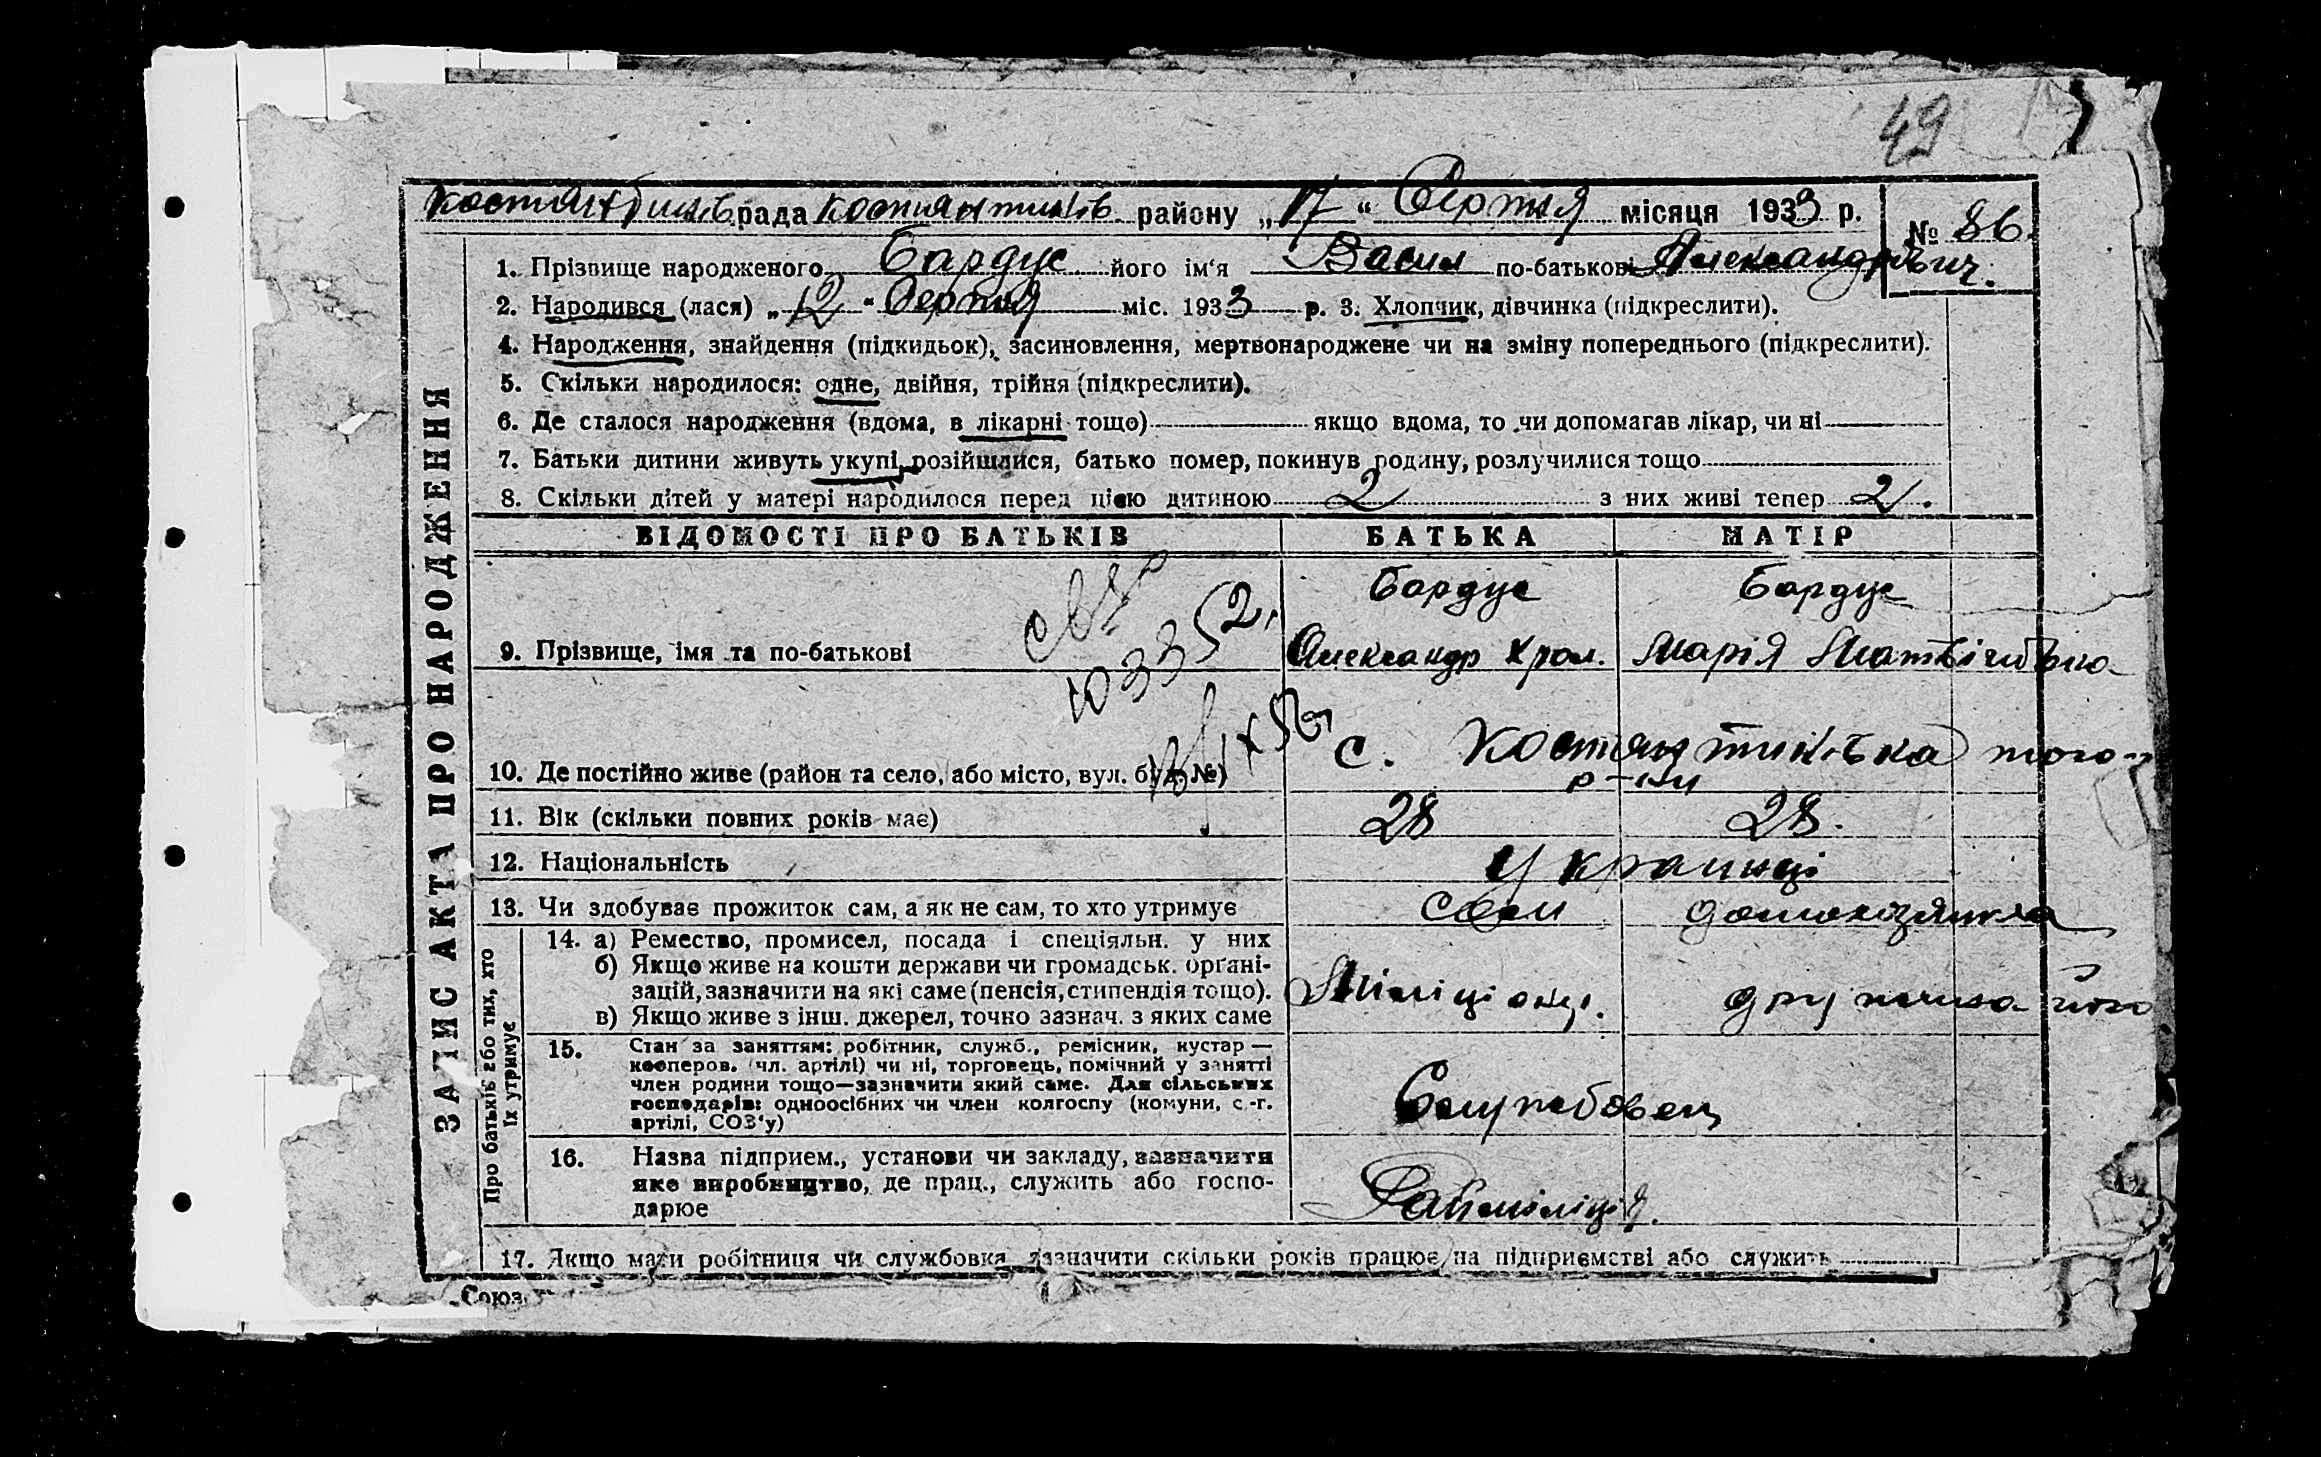 49
Костянтинів. рада Костянтинів. району „17“ Серпня місяця 1933 р. № 86.
1. Прізвище народженого Бардус його ім‘я Васил по-батькові Александрович.
2. Народився (лася) „12“ Серпня міс. 1933 р. 3. Хлопчик, дівчинка (підкреслити).
4. Народження, знайдення (підкидьок), засиновлення, мертвонароджене чи на зміну попереднього (підкреслити).
5. Скільки народилося: одне, двійня, трійня (підкреслити).
6. Де сталося народження (вдома, в лікарні тощо) якщо вдома, то чи допомагав лікар, чи ні
7. Батьки дитини живуть укупі, розійшлися, батько помер, покинув родину, розлучилися тощо
8. Скільки дітей у матері народилося перед цією дитиною 2 з них живі тепер 2.
ЗАПИС АКТА ПРО НАРОДЖЕННЯ
ВІДОМОСТІ ПРО БАТЬКІВ БАТЬКА МАТІР
Бардус Бардус
9. Прізвище, імя та по-батькові Александр Хрол. Марія Матвіївна
103352.
10. Де постійно живе (район та село, або місто, вул. буд. №) с. Костянтинівка того
р-ну
11. Вік (скільки повних років має) 28 28.
12. Національність Украинці
13. Чи здобуває прожиток сам, а як не сам, то хто утримує сам домохозяйка
Про батьків або тих, хто
їх утримує
14. а) Ремество, промисел, посада і спеціяльн. у них
б) Якщо живе на кошти держави чи громадськ. органі-
зацій, зазначити на які саме (пенсія, стипендія тощо). Міліціонер. дружина його
в) Якщо живе з інш. джерел, точно зазнач. з яких саме
15. Стан за заняттям: робітник, служб., ремісник, кустар —
кооперов. (чл. артілі) чи ні, торговець, помічний у занятті
член родини тощо—зазначити який саме. Для сільських
господарів: одноосібних чи член колгоспу (комуни, с.-г. Службовец
артілі, СОЗ‘у)
16. Назва підприєм., установи чи закладу, зазначити
яке виробництво, де прац., служить або госпо- Райміліція.
дарює
17. Якщо мати робітниця чи службовка, зазначити скільки років працює на підприємстві або служить
Союз